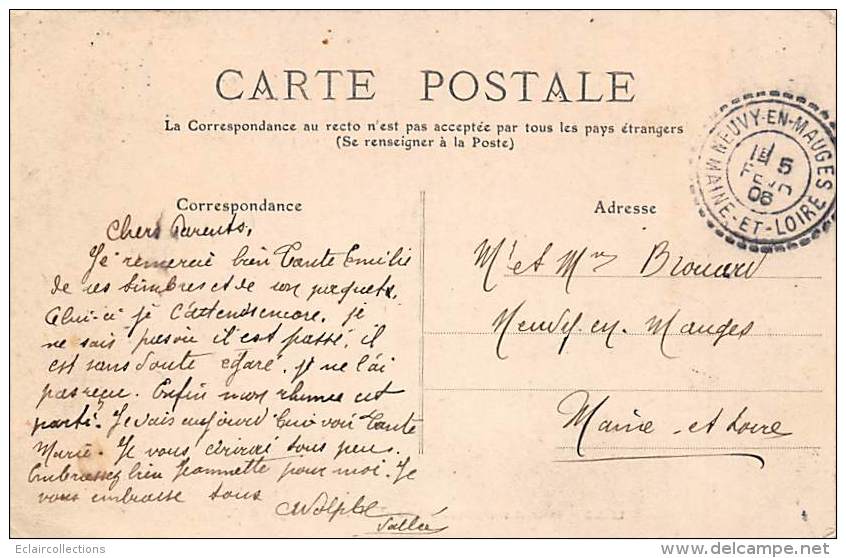 CARTE POSTALE
La Correspondance au recto n'est pas acceptée par tous les pays étrangers
(Se renseigner à la Poste)
NEUVY-EN-MAUGES
5
08
MAINE-ET-LOIRE
Correspondance
Chers Parents,
Je remercie bien Tante Emilie
de ses timbres et de son paquets,
Celui-ci je l'attends encore, je
ne sais pas où il est passé, il
est sans doute égaré, je ne l'ai
pas reçu. Enfin mon rhume est
parti. Je vais aujourd'hui voir Tante
Marie. Je vous écrirai sous peu.
Embrassez bien Jeannette pour moi. Je
vous embrasse tous
Adresse
Mr et Mme
Neuvy-en-Mauges
Maine-et-Loire
Eclaircollections
delcampe.net